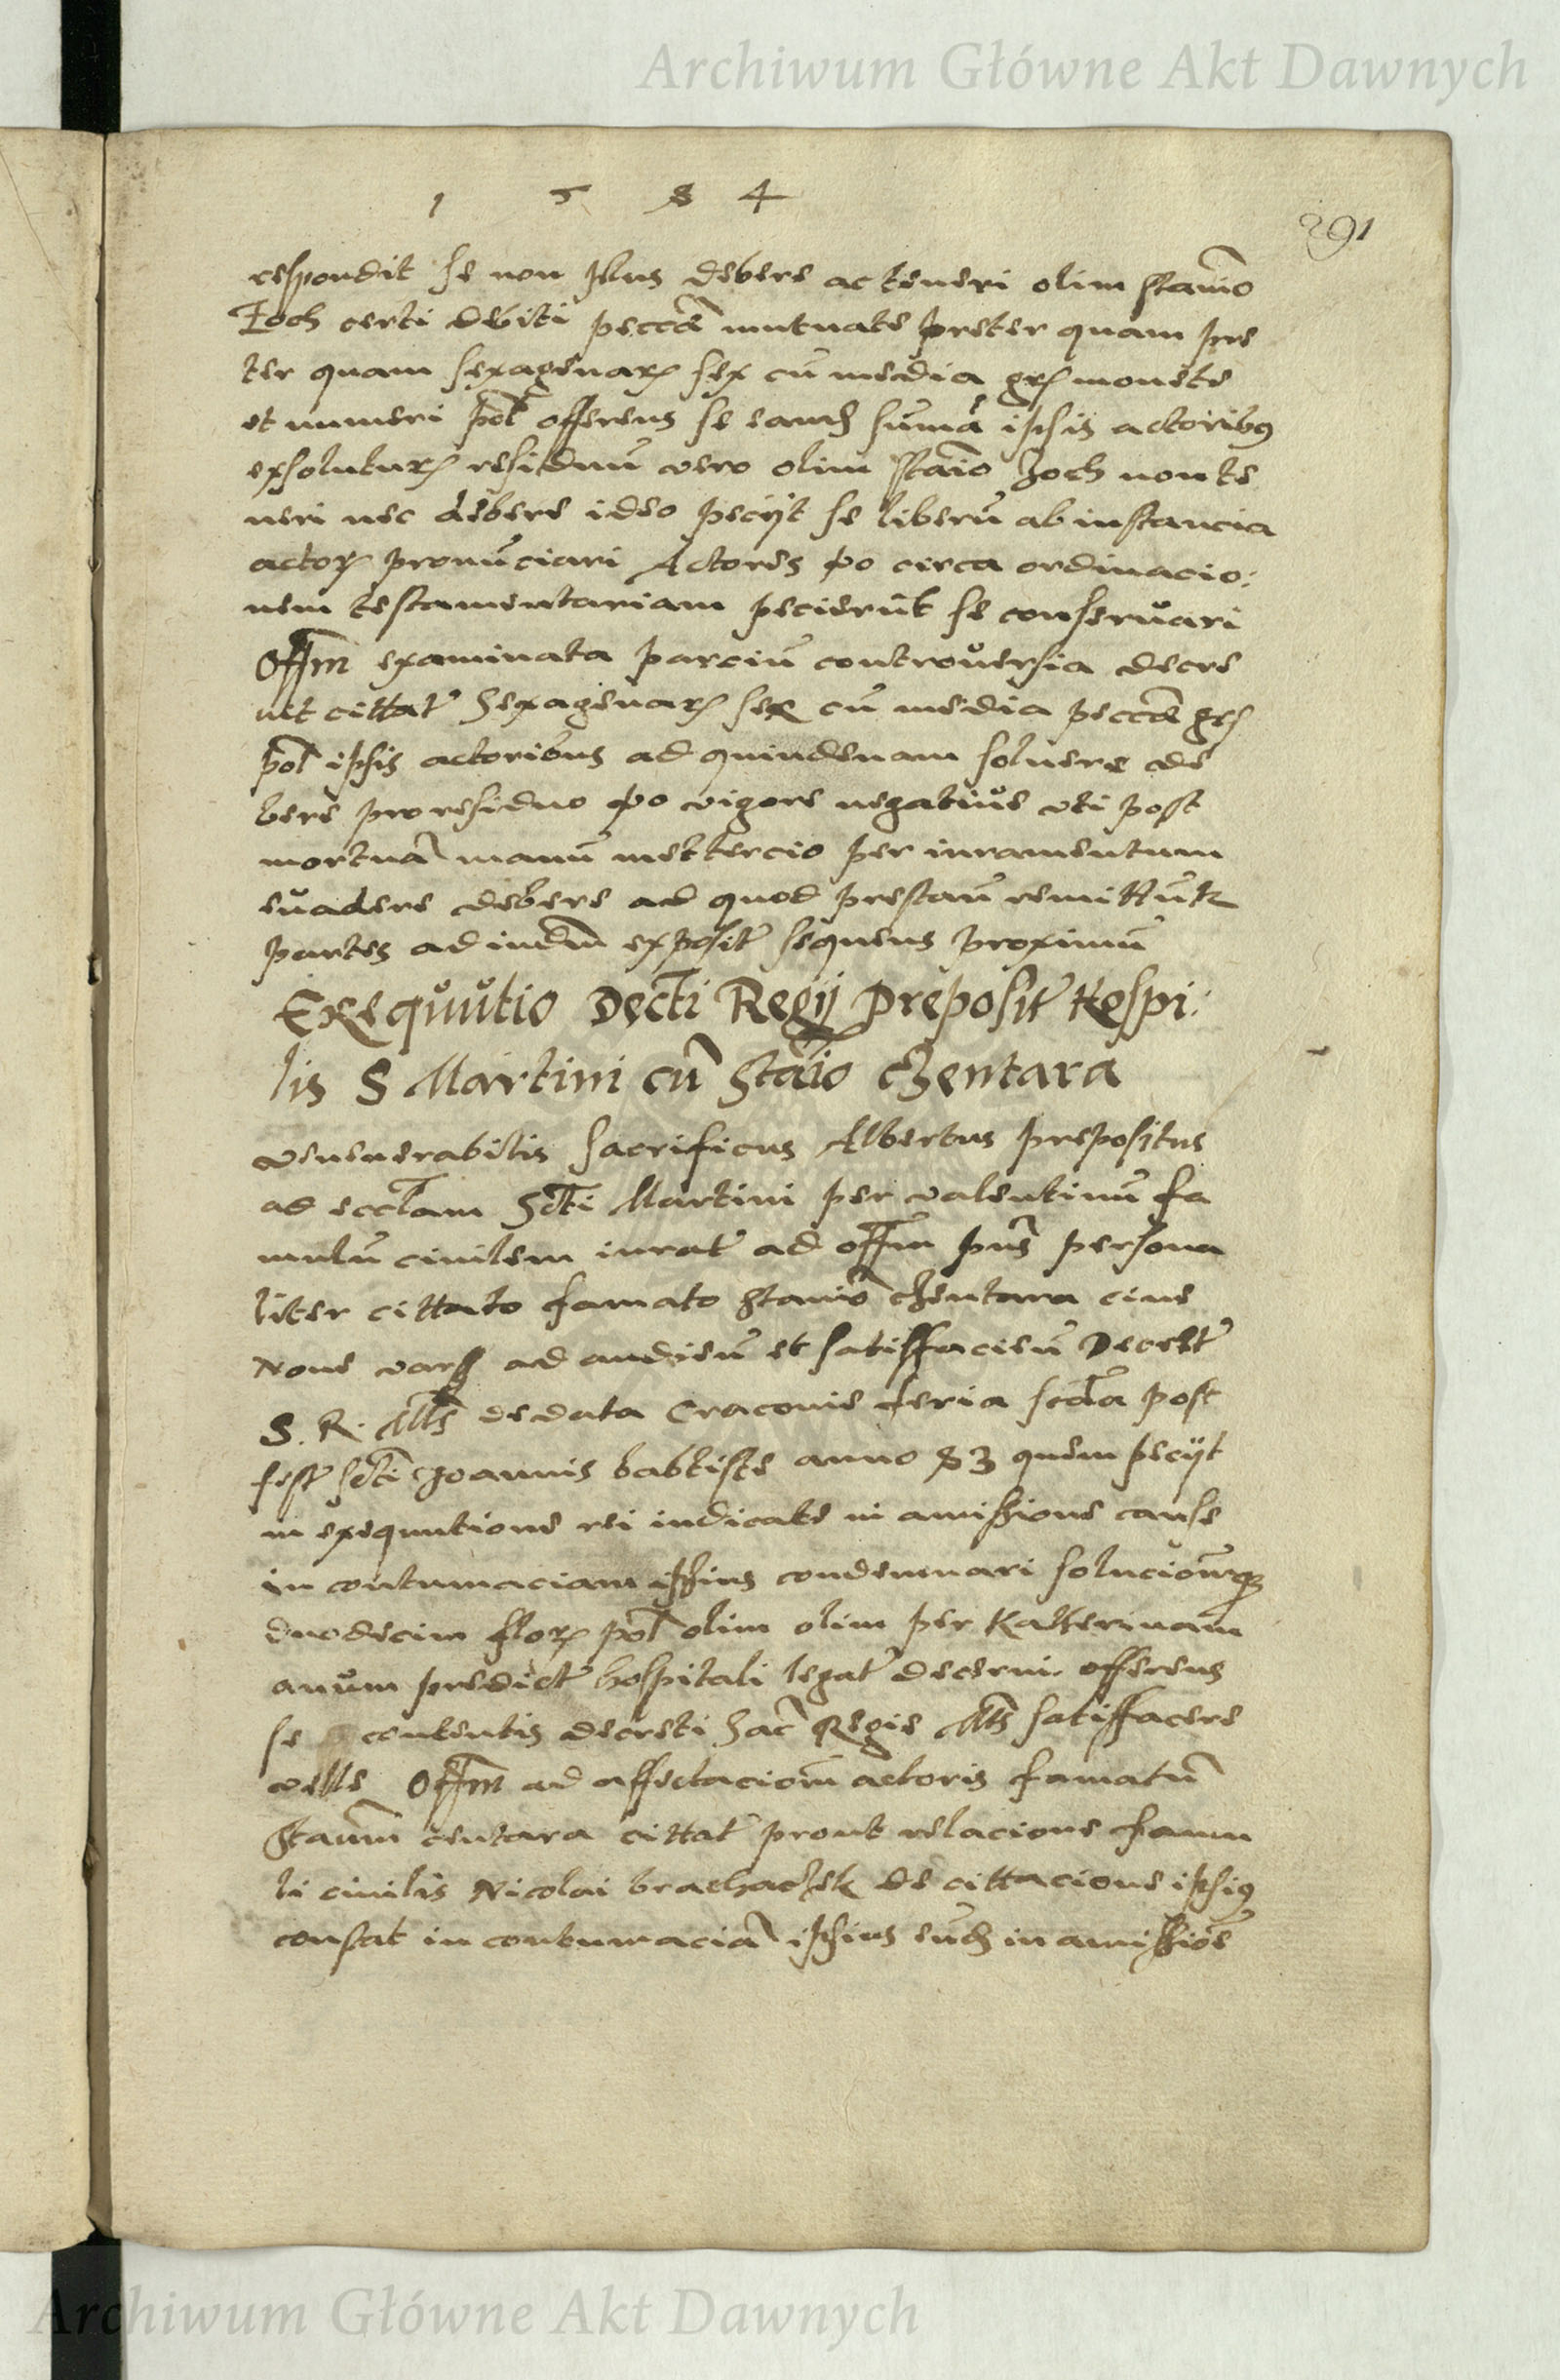 Archiwum Główne Akt Dawnych
1 5 8 4
291
respondit se non plus debere ac teneri olim stanio
Zoch certi debiti peccae mutuate preter quam pre
ter quam sexagenar sex cu media grs monete
et numeri pol offerens se eand suma ipsis actoribus
exsolutur residuu vero olim stanio Zoch non te
neri nec debere ideo peciit se liberu ab instancia
actor pronunciari Actores vo circa ordinacio:
nem testamentariam pecierunt se conservari
Offm examinata parciu controversia decre
vit cittat Sexagenar sex cu media peccae grs
pol ipsis actoribus ad quindenam solvere de
bere pro residuo vo vigore negative uti post
mortua manu mettercio per iuramentum
evadere debere ad quod prestan remittunt
partes ad iudm exposit sequens proximu
Exequutio Decti Regij Preposit Hospi:
lis S Martini cu Stanio Czentara
venenerabilis sacrificus Albertus prepositus
ad ecclam Scti Martini per valentinu fa
mulu civilem iurat ad offm pns persona
liter cittato famato stanio Czentara cive
Nove vars ad audien et satisfacien Decret
S. R. Mts de data Cracovie feria scda post
fest scti Joannis babtiste anno 83 quem peciit
in exequutione rei iudicate in amissione cause
in contumaciam ipsius condemnari solucionemque
duodecim flor pol olim olim per Katherinam
anum predict hospitali legat decerni offerens
se contentis decreti Sac Regie Mts satisfacere
velle Offm ad affectaciom actoris famatu
Stanm centara cittat prout relacione famu
li civilis Nicolai brachaczek de cittacione ipsius
constat in contumacia ipsius eund in amissioe
Archiwum Główne Akt Dawnych